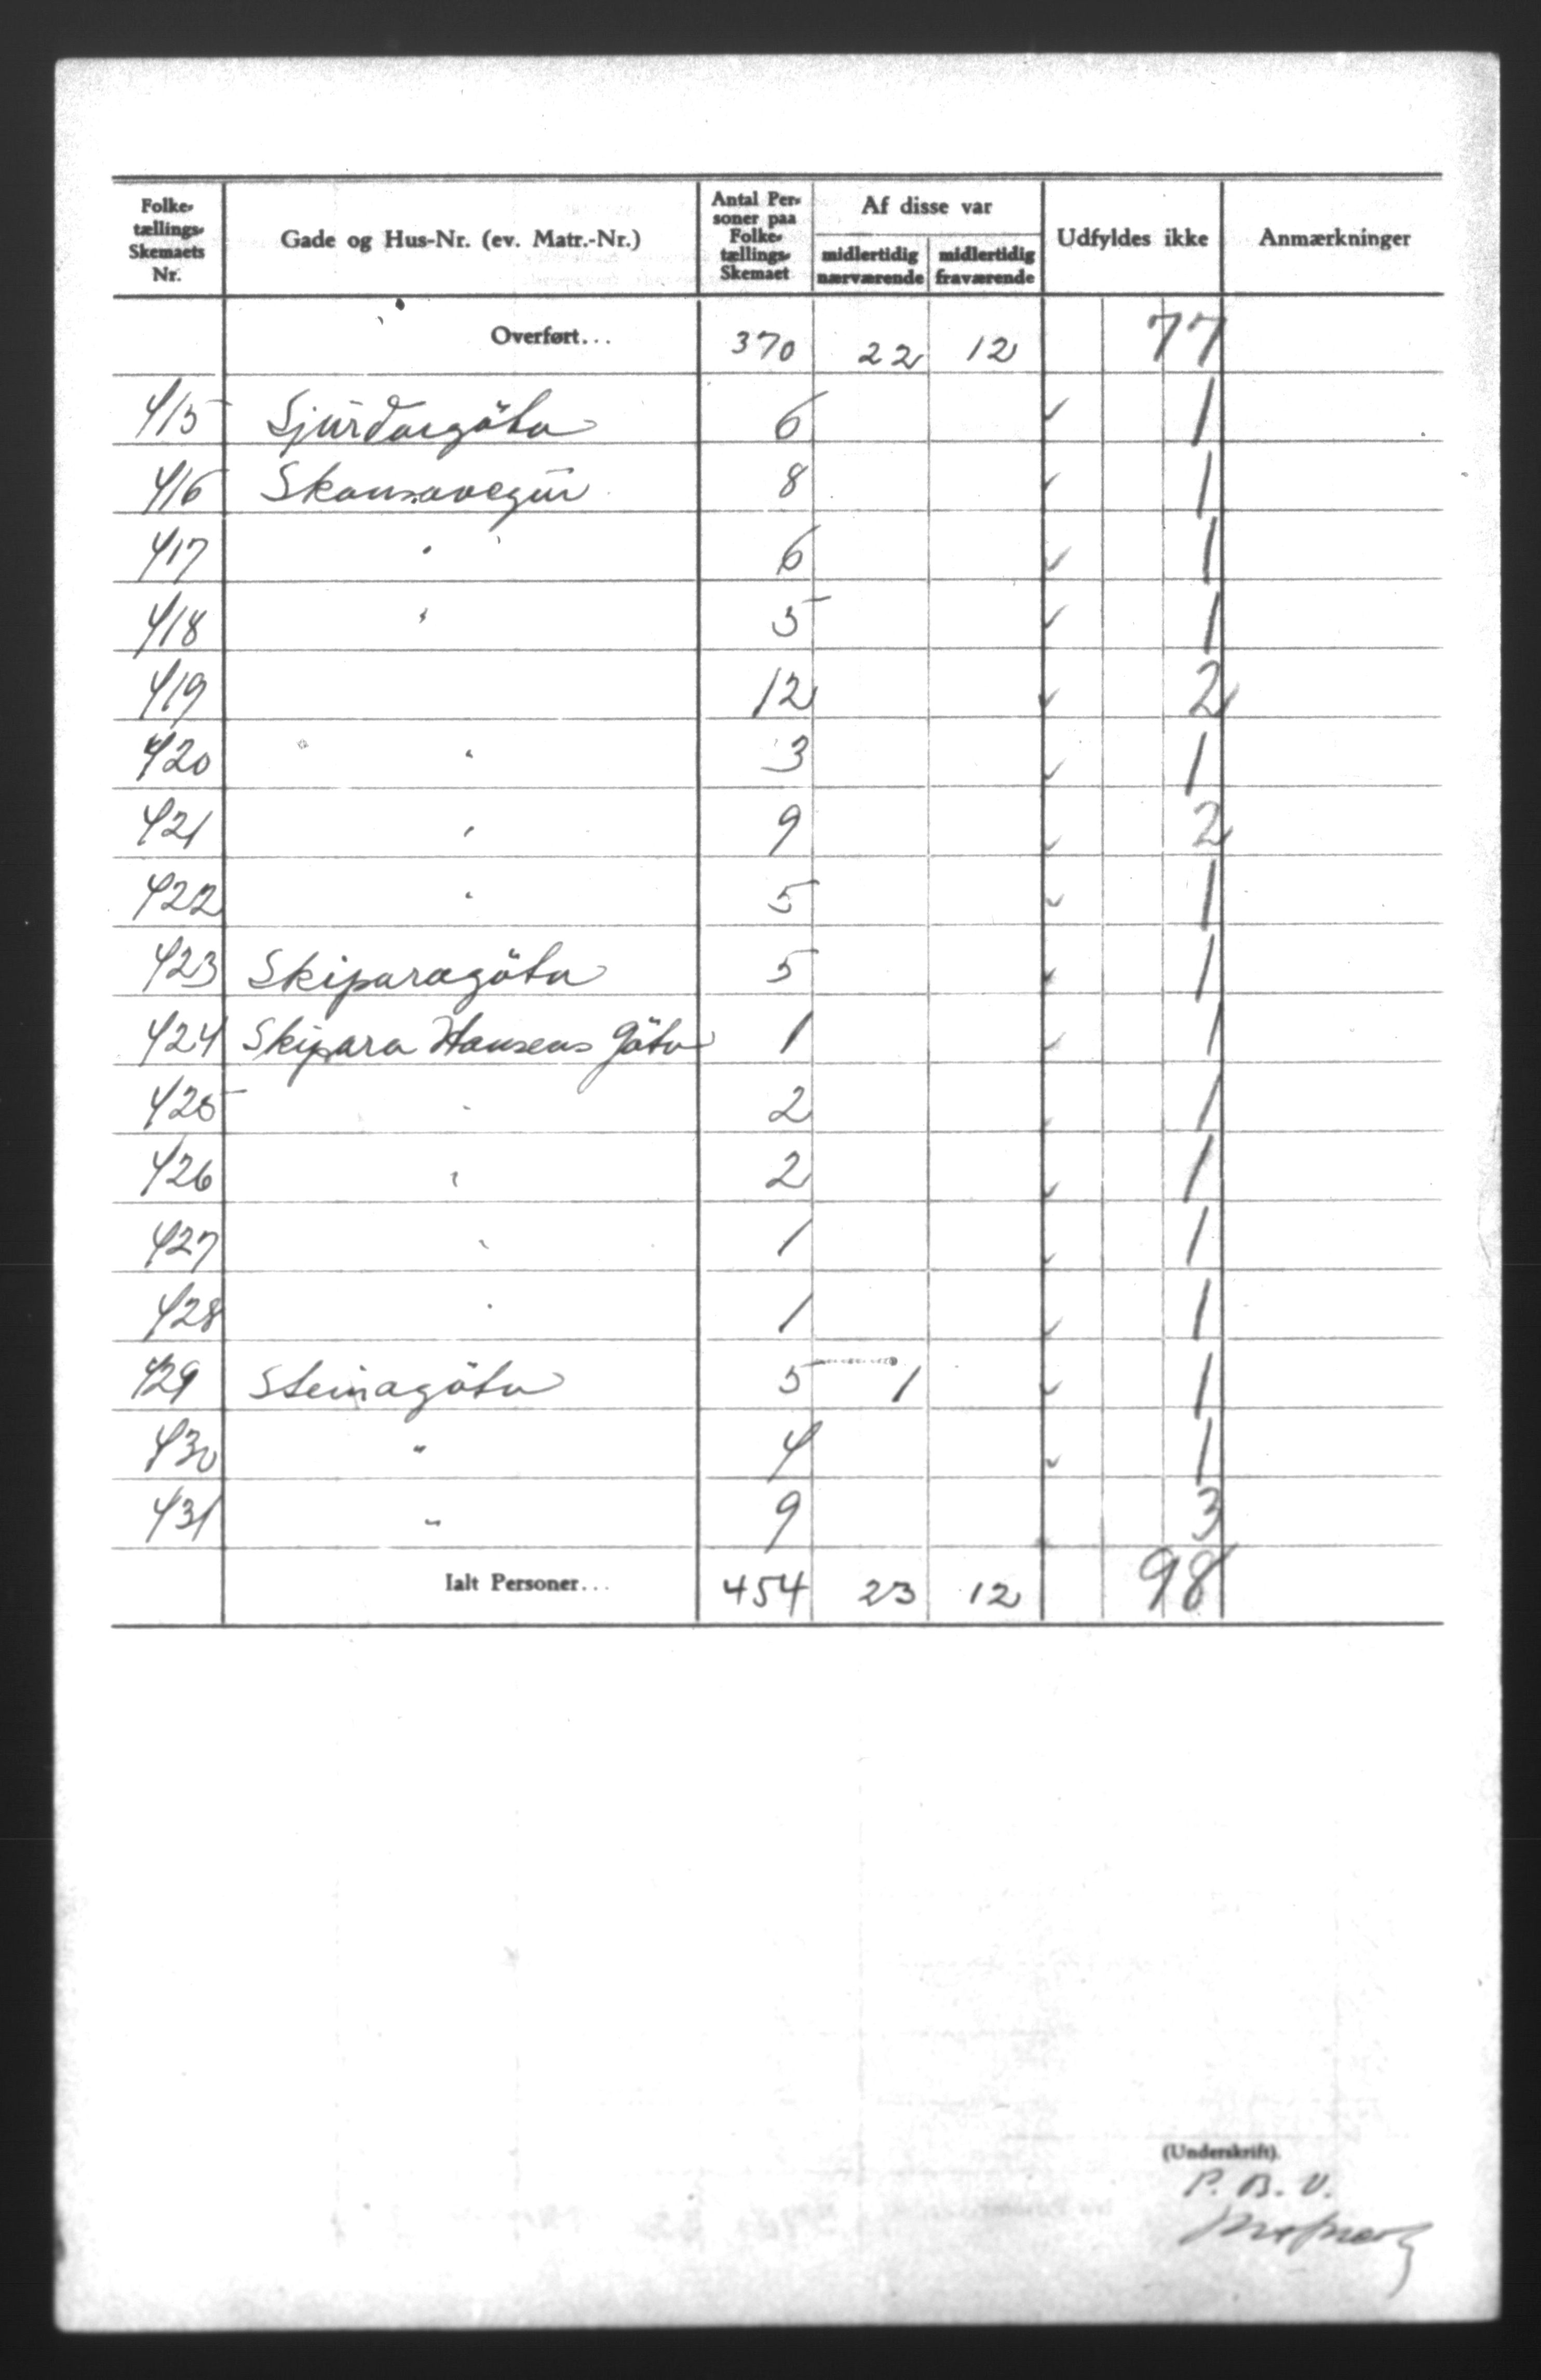 Folke-tællings-Skemaets Nr. Gade og Hus-Nr. (ev. Matr.-Nr.) Antal Personer paa Folke-tællings-Skemaet Af disse var midlertidig nærværende midlertidig fraværende Udfyldes ikke Anmærkninger
Overført... 370 22 12 77
415 Sjúrdargöta 6 ✓ 1
416 Skansavegur 8 ✓ 1
417 " 6 ✓ 1
418 " 5 ✓ 1
419 12 ✓ 2
420 " 3 ✓ 1
421 " 9 ✓ 2
422 " 5 ✓ 1
423 Skiparagöta 5 ✓ 1
424 Skipara Hansens göta 1 ✓ 1
425 " 2 ✓ 1
426 " 2 ✓ 1
427 " 1 ✓ 1
428 " 1 ✓ 1
429 Steinagöta 5 1 ✓ 1
430 " 4 ✓ 1
431 " 9 3
Ialt Personer... 454 23 12 98
(Underskrift).
P. B. V.